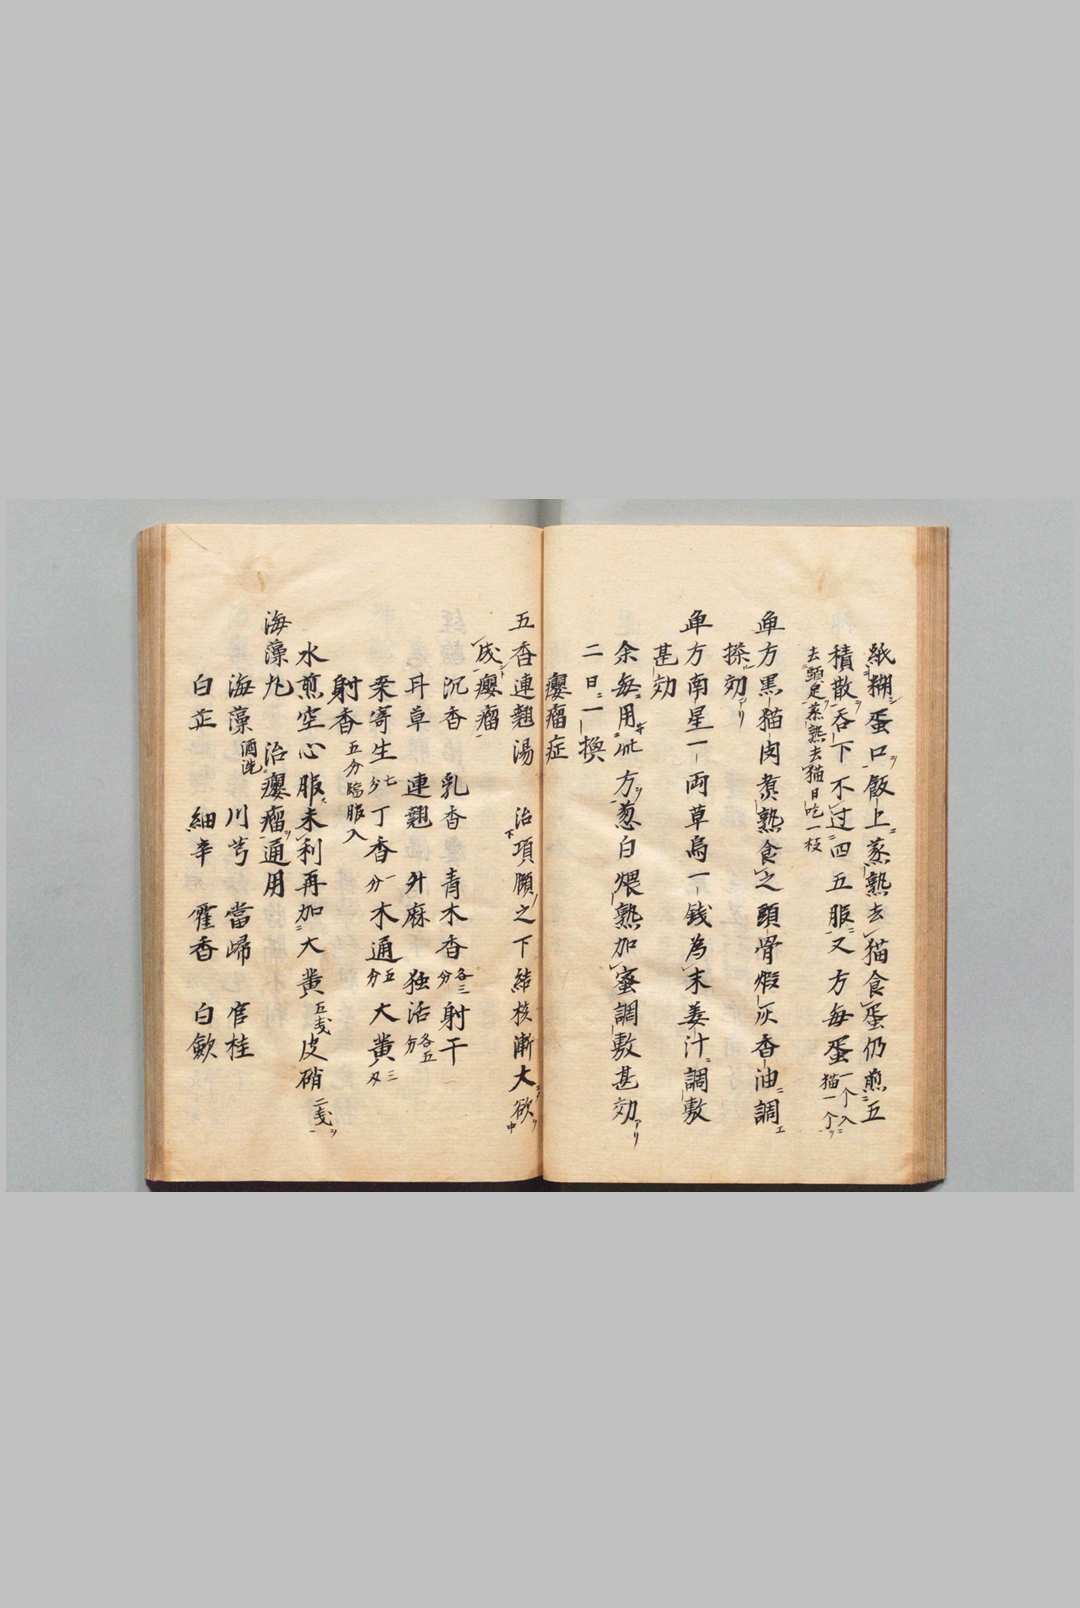 紙糊蛋口飯上蒸熟去猫食蛋仍煎五
積散吞下不过四五服又方每蛋一个入猫一个
去頭足蒸熟去猫日吃一枚
単方黒猫肉煮熟食之頭骨煆灰香油調
搽効アリ
単方南星一両草烏一銭為末姜汁調敷
甚効
余毎用此方葱白煨熟加蜜調敷甚効アリ
二日一換
瘿瘤症
五香連翹湯 治項顋之下結核漸大欲
成瘿瘤
沉香 乳香 青木香各三分 射干
甘草 連翹 升麻 独活各五分
桒寄生七分 丁香一分 木通五分 大黄三刄
射香五分臨服入
水煎空心服未利再加大黄五戋皮硝二戋
海藻丸 治瘿瘤通用
海藻酒洗 川芎 當歸 官桂
白芷 細辛 藿香 白歛